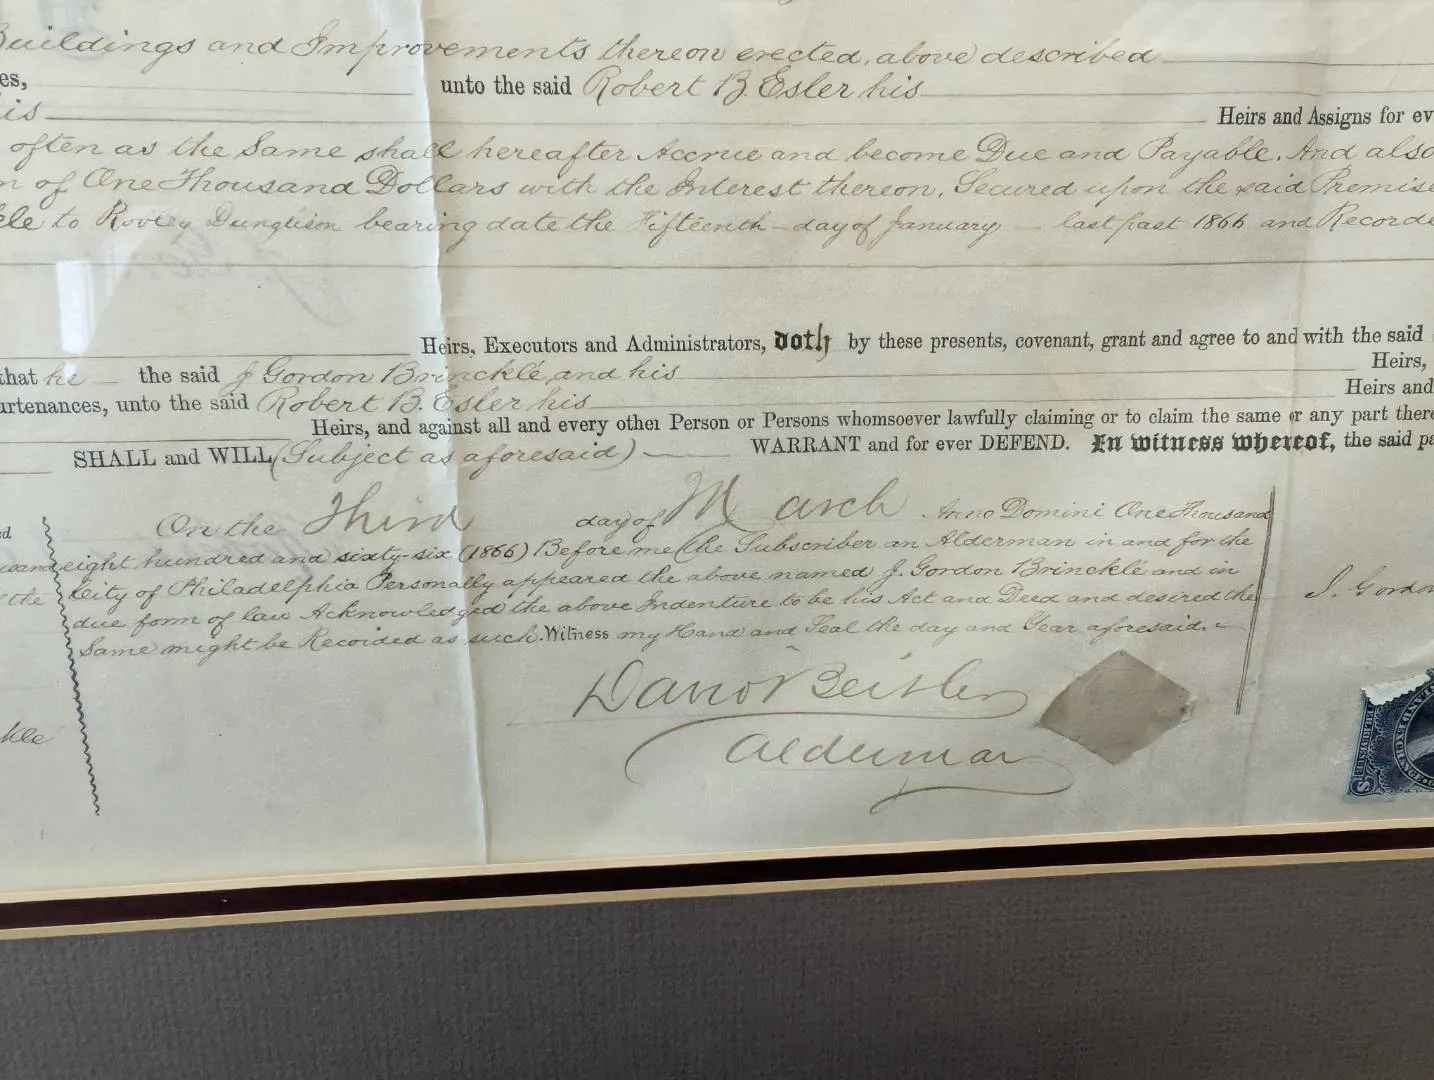 Buildings and Improvements thereon erected, above described
es, unto the said Robert B. Esler his
is Heirs and Assigns for ev
often as the Same shall hereafter Accrue and become Due and Payable. And also
n of One Thousand Dollars with the Interest thereon, Secured upon the said Premise
kle to Rovley Dunglison bearing date the Fifteenth day of January last past 1866 and Recorde
Heirs, Executors and Administrators, doth by these presents, covenant, grant and agree to and with the said
that he the said J Gordon Brincklé, and his Heirs,
urtenances, unto the said Robert B. Esler his Heirs and
Heirs, and against all and every other Person or Persons whomsoever lawfully claiming or to claim the same or any part there
SHALL and WILL (Subject as aforesaid) WARRANT and for ever DEFEND. In witness whereof, the said pa
On the Third day of March Anno Domini One Thousand
eight hundred and sixty-six (1866) Before me the Subscriber an Alderman in and for the
City of Philadelphia Personally appeared the above named J. Gordon Brincklé and in
due form of law Acknowledged the above Indenture to be his Act and Deed and desired the
Same might be Recorded as such. Witness my Hand and Seal the day and Year aforesaid.
David Beitler
Alderman
ed
the
kle
J. Gordon